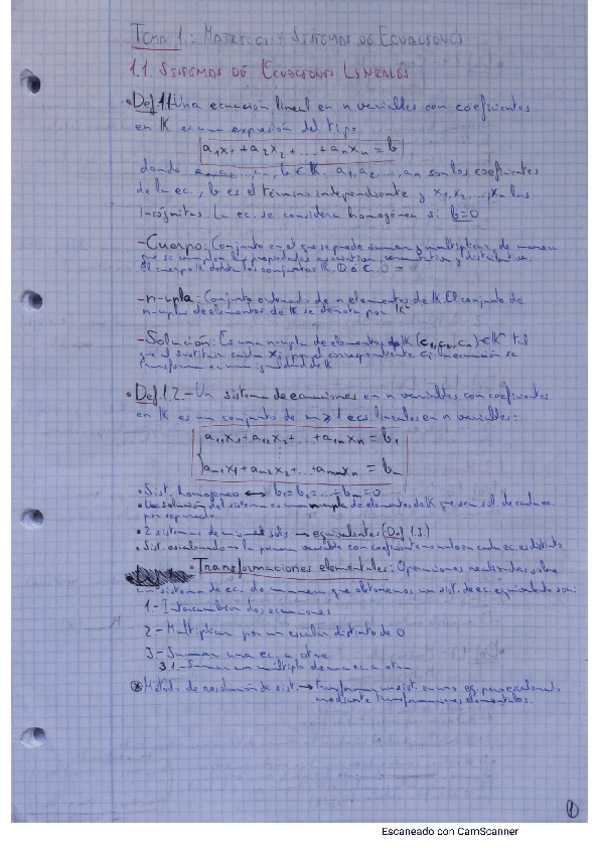 TEMA 1: MATRICES Y SISTEMAS DE ECUACIONES
1.1. SISTEMAS DE ECUACIONES LINEALES
• Def 1.1.-Una ecuación lineal en n variables con coeficientes
en K es una expresión del tipo
a₁x₁ + a₂x₂ + ... + aₙxₙ = b
donde a₁, a₂, ..., aₙ, b ∈ K. a₁, a₂, ..., aₙ son los coeficientes
de la ec., b es el término independiente y x₁, x₂, ..., xₙ las
incógnitas. La ec. se considera homogénea si b=0
- Cuerpo: Conjunto en el que se puede sumar y multiplicar, de manera
que se cumplen las propiedades asociativa, conmutativa y distributiva.
El cuerpo K los conjuntos R, Q o C.
- n-upla: Conjunto ordenado de n elementos de K. El conjunto de
n-uplas de elementos de K se denota por Kⁿ
- Solución: Es una n-upla de elementos de K (c₁, c₂, cₙ) ∈ Kⁿ tal
que al sustituir cada xⱼ por el correspondiente cⱼ la ecuación se
transforma en una igualdad de K
• Def 1.2.- Un sistema de ecuaciones en n variables con coeficientes
en K es un conjunto de m ≥ 1 ecs. lineales en n variables:
a₁₁x₁ + a₁₂x₂ + ... + a₁ₙxₙ = b₁
aₘ₁x₁ + aₘ₂x₂ + ... + aₘₙxₙ = bₘ
• Sist. homogéneo ↔ b₁=b₂=...=bₘ=0
• Una solución del sistema es una nupla de elementos de K que sea sol. de cada ec.
por separado
• 2 sistemas de mismas sols → equivalentes (Def 1.3)
• Sist. escalonado → la primera variable con coeficiente no nulo en cada ec. es distinta
• Transformaciones elementales: Operaciones realizadas sobre
un sistema de ec. de manera que obtenemos un sist. de ec. equivalente son:
1.- Intercambiar dos ecuaciones
2.- Multiplicar por un escalar distinto de 0
3.- Sumar una ec. a otra
3.1.- Sumar un múltiplo de una ec. a otra
* Método de resolución de sist. → transformar un sist. en uno eq. escalonado
mediante transformaciones elementales.
1
Escaneado con CamScanner